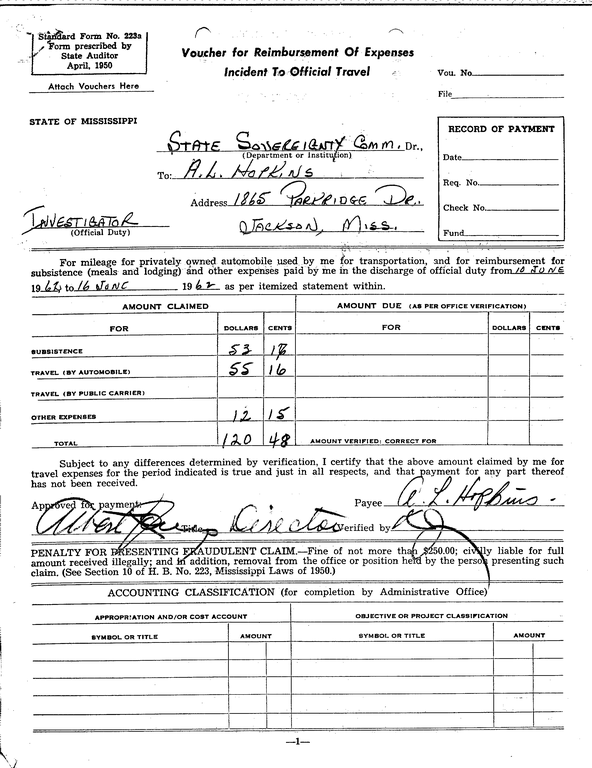 Standard Form No. 223a
Form prescribed by
State Auditor
April, 1950
Attach Vouchers Here
Voucher for Reimbursement Of Expenses
Incident To Official Travel
Vou. No.
File
STATE OF MISSISSIPPI
STATE SOVEREIGNTY COMM. Dr.,
(Department or Institution)
To: A.L. HOPKINS
Address 1865 PARKRIDGE DR.
INVESTIGATOR JACKSON, MISS.
(Official Duty)
RECORD OF PAYMENT
Date
Req. No.
Check No.
Fund
For mileage for privately owned automobile used by me for transportation, and for reimbursement for
subsistence (meals and lodging) and other expenses paid by me in the discharge of official duty from 10 JUNE
1962, to 16 JUNE 1962 as per itemized statement within.
AMOUNT CLAIMED AMOUNT DUE (AS PER OFFICE VERIFICATION)
FOR DOLLARS CENTS FOR DOLLARS CENTS
SUBSISTENCE 53
TRAVEL (BY AUTOMOBILE) 55 16
TRAVEL (BY PUBLIC CARRIER)
OTHER EXPENSES 12 15
TOTAL 120 48 AMOUNT VERIFIED: CORRECT FOR
Subject to any differences determined by verification, I certify that the above amount claimed by me for
travel expenses for the period indicated is true and just in all respects, and that payment for any part thereof
has not been received.
Payee A. L. Hopkins
Approved for payment:
Albert Title Director Verified by
PENALTY FOR PRESENTING FRAUDULENT CLAIM.—Fine of not more than $250.00; civilly liable for full
amount received illegally; and in addition, removal from the office or position held by the person presenting such
claim. (See Section 10 of H. B. No. 223, Mississippi Laws of 1950.)
ACCOUNTING CLASSIFICATION (for completion by Administrative Office)
APPROPRIATION AND/OR COST ACCOUNT OBJECTIVE OR PROJECT CLASSIFICATION
SYMBOL OR TITLE AMOUNT SYMBOL OR TITLE AMOUNT
—1—